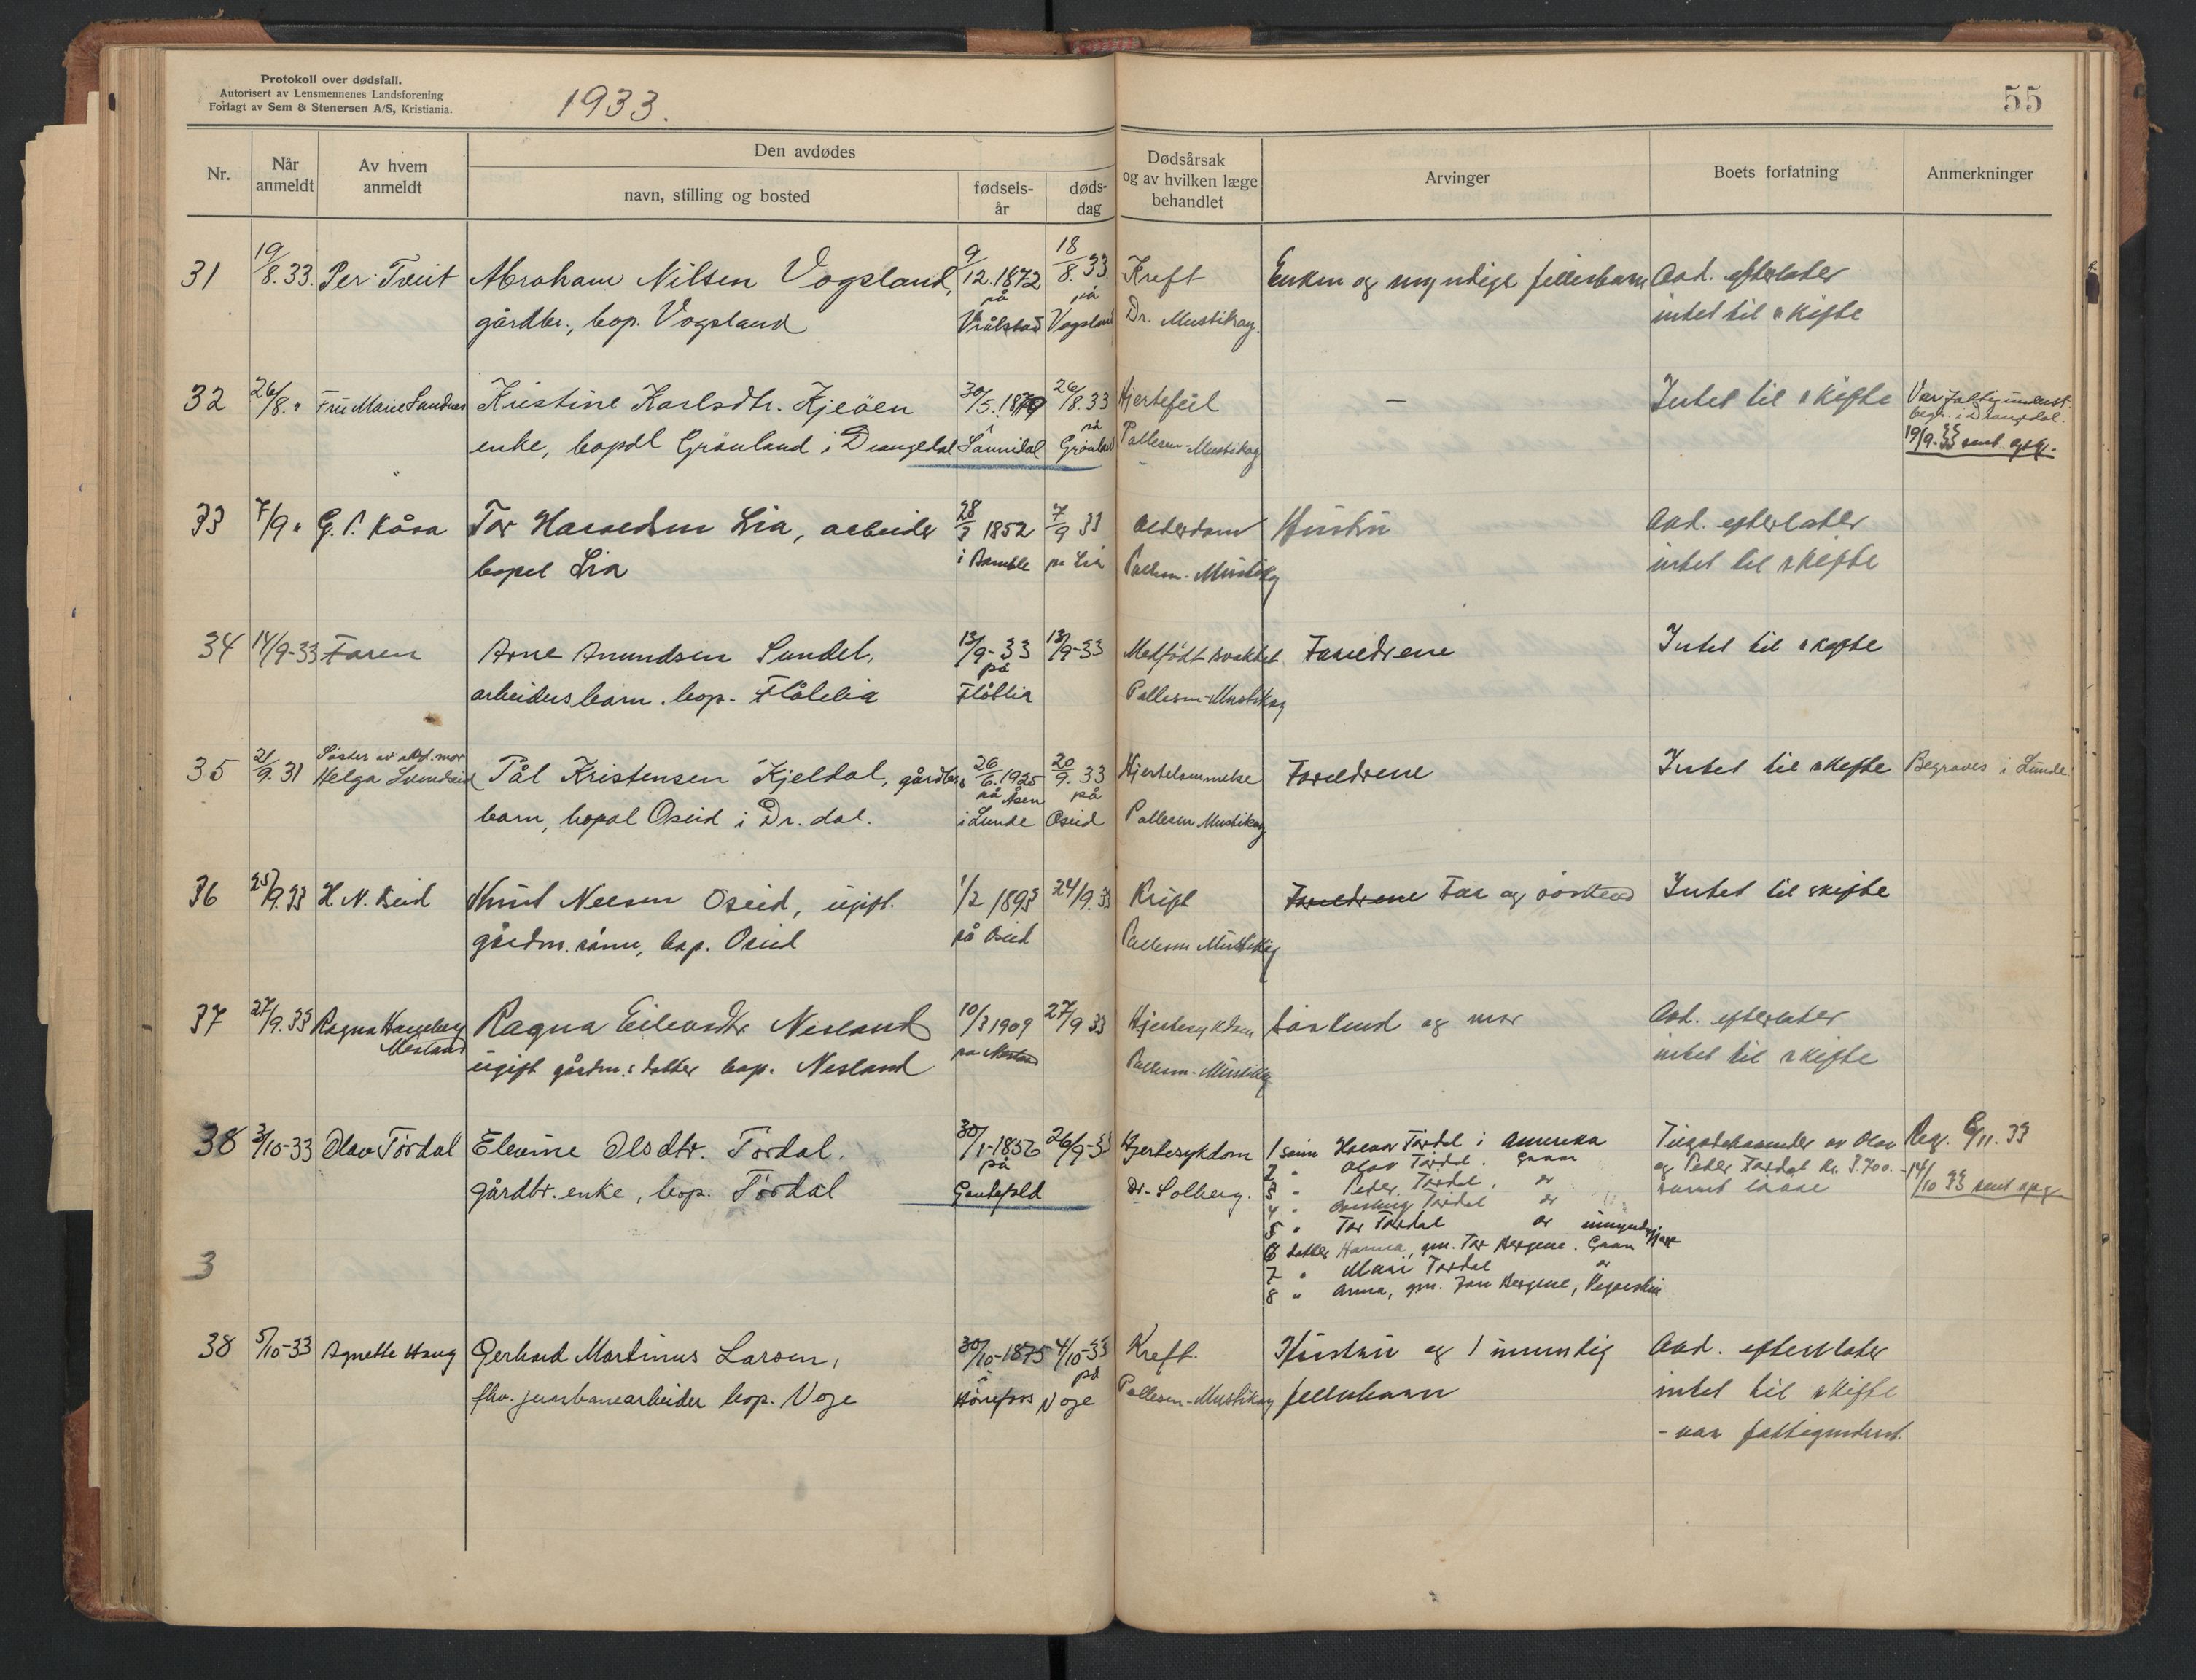 Protokoll over dødsfall.
Autorisert av Lensmennenes Landsforening
Forlagt av Sem & Stenersen A/S, Kristiania.
1933.
55
Nr.
Når anmeldt
Av hvem anmeldt
Den avdødes
navn, stilling og bosted
fødsels-år
døds-dag
Dødsårsak og av hvilken læge behandlet
Arvinger
Boets forfatning
Anmerkninger
31 19/8.33. Per Tveit Abraham Nilsen Vogsland, 9/12.1872 18/8.33 Kreft Enken og myndige fellesbarn Avd. efterlater
gårdbr., bop. Vogsland på Vråkstad på Vogsland Dr. Mustikay. intet til skifte
32 26/8. " Fru Marie Sundnes Kristine Karlsdtr. Kjeøen 30/5.1879 26/8.33 Hjertefeil — Intet til skifte Var fattigunderst.
enke, bopdl Grønland i Drangedal i Sannidal på Grønland Pallesen-Mustikay begr. i Drangedal.
19/9-33 sent opg.
33 7/9 " G. P. Kåsa Tor Haraldsen Lia, arbeider 28/8 1852 7/9 33 Alderdom Hustru Avd. efterlater
bopel Lia i Bamble på Lia Pallesen-Mustikay intet til skifte
34 14/9-33 Faren Arne Amundsen Sundet, 13/9-33 13/9-33 Medfødt svakhet Foreldrene Intet til skifte
arbeidersbarn. bop. Flåtelia på Flåtlia Pallesen-Mustikay
35 21/9.31 Søster av avd. mor
Helga Svendseid Pål Kristensen Kjeldal, gårdbr.s 26/6.1925 20/9.33 Hjertelammelse Foreldrene Intet til skifte Begraves i Lunde
barn, bopal Oseid i Dr. dal. på Åsen i Lunde på Oseid Pallesen Mustikay
36 25/9.33 H. N. Oseid Knut Nilsen Oseid, ugift. 1/2 1893 24/9.33 Kreft Foreldrene Far og søsken Intet til skifte
gårdm. sønn, bop. Oseid på Oseid Pallesen Mustikay
37 27/9.33 Ragna Haugeberg
Nesland Ragna Eilevsdtr Nesland 10/3 1909 27/9 33 Hjertesykdom Søskend og mor Avd. efterlater
ugift gårdm.s datter bop. Nesland på Nesland Pallesen-Mustikay intet til skifte
38 3/10-33 Olav Tørdal Elevine Olsdtr. Tørdal. 30/1-1856 26/9-33 Hjertesykdom 1 sønn Halvor Tørdal i Amerika Reg. 6/11. 33
gårdbr. enke, bop. Tørdal på Gautefald Dr. Solberg. 2 " Olav Tørdal. og Peder Tørdal kr. 3.700. 14/10 33 sent opg
3 " Peder Tørdal.
4 " Tørdal
5 " Tor Tørdal
6 datter Hanna, gm. Tor Bergene.
7 " Mari Tørdal
8 " Anna, gm. Jon Bergene,
3
38 5/10-33 Agnette Haug Gerhard Martinus Larsen, 30/10-1875 4/10-33 Kreft. Hustru og 1 umyndig Avd. efterlater
fhv. jernbanearbeider bop. Voje i Hønefoss på Voje Pallesen-Mustikay fellesbarn intet til skifte
- var fattigunderst.